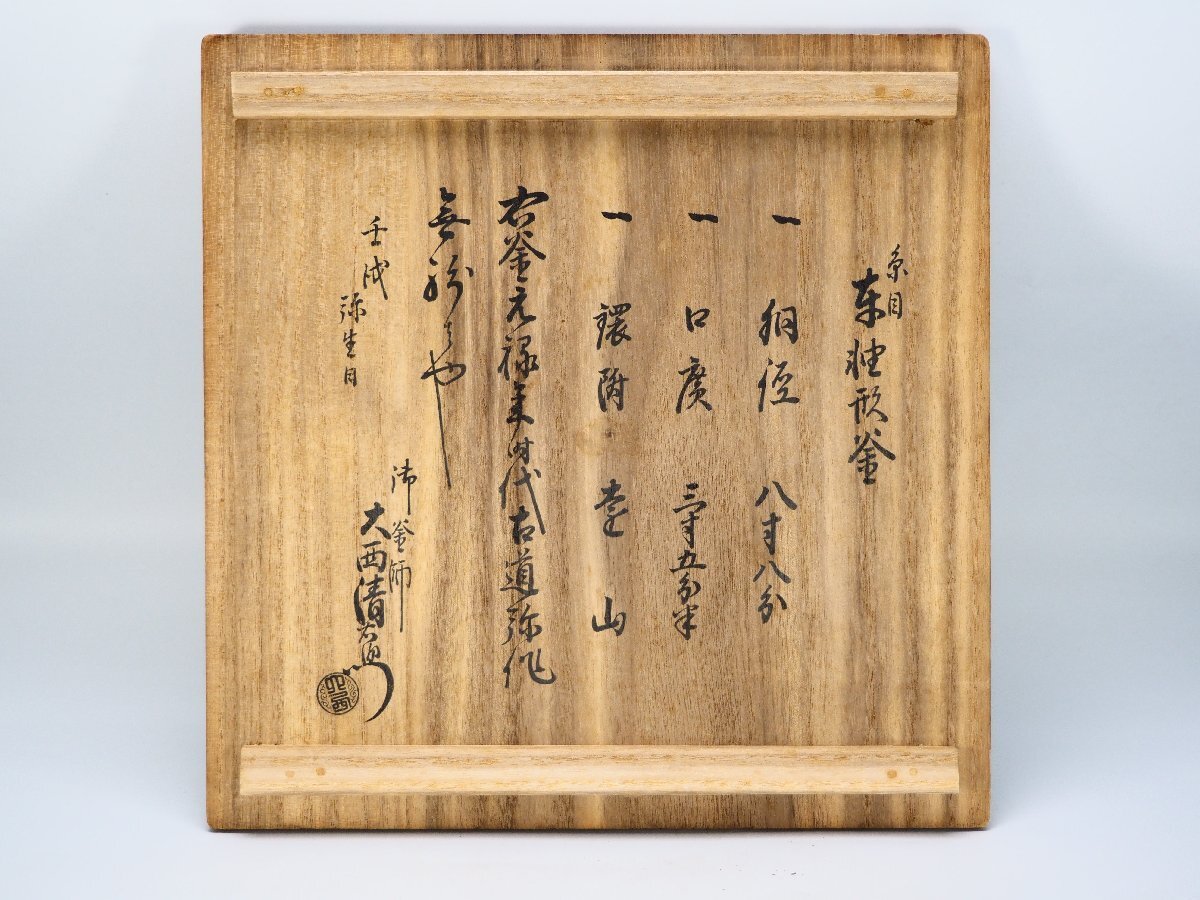 糸目
車軸形釜
一 胴径 八寸八分
一 口廣 三寸五分半
一 鐶附 遠山
右釜元禄年時代古道弥作
無紛者也
壬戌
弥生月
御釜師
大西清右衛門
大西